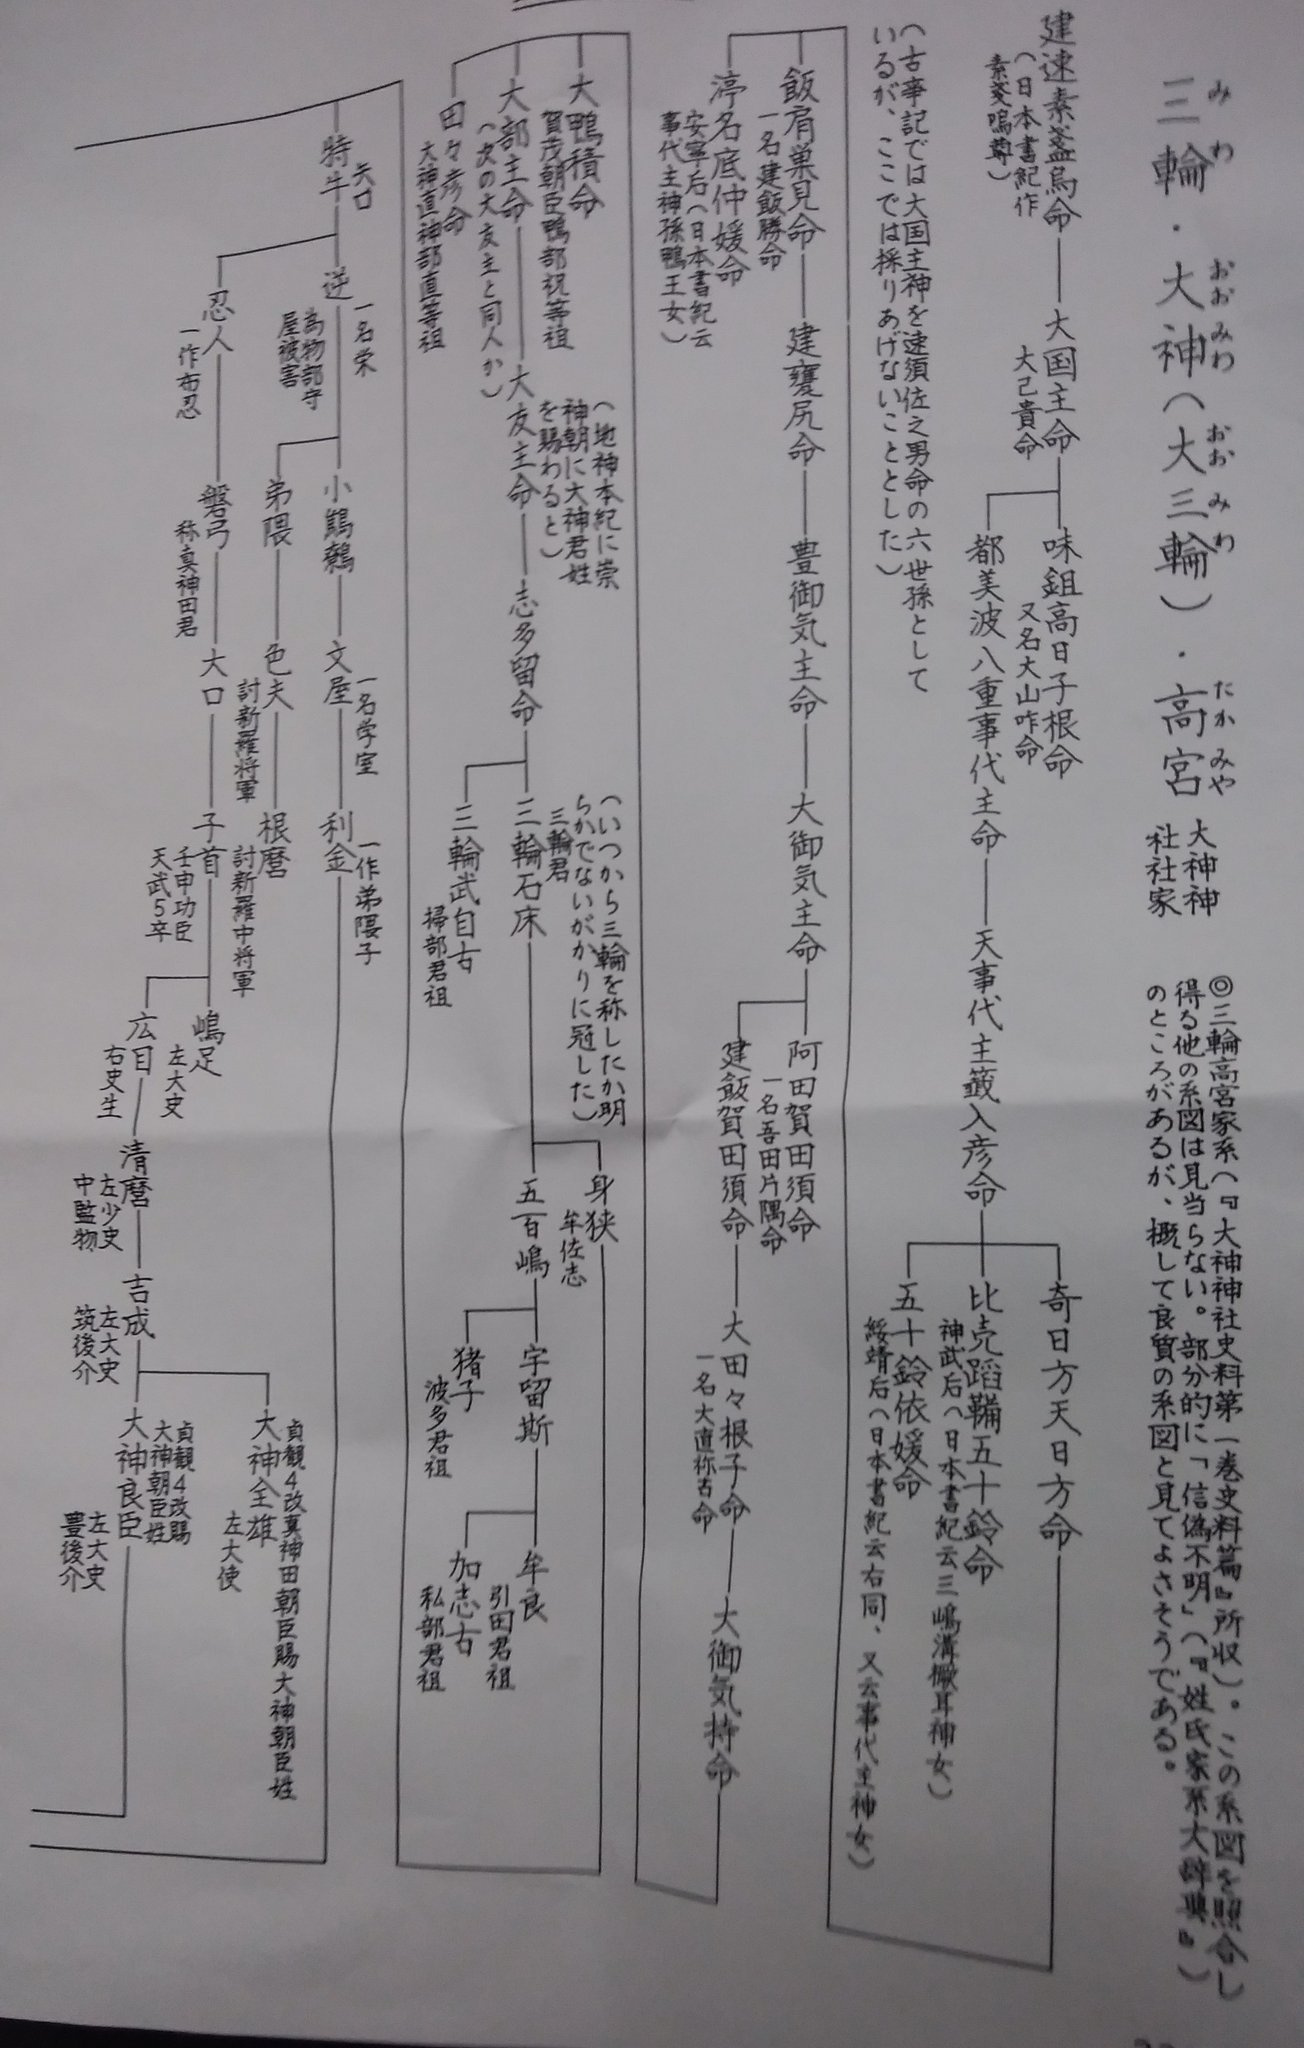 三輪・大神（大三輪）・高宮
みわ おおみわ おおみわ たかみや
大神神
社社家
◎三輪高宮家系（『大神神社史料第一巻史料篇』所収）。この系図を照合し
得る他の系図は見当らない。部分的に「信偽不明」（『姓氏家系大辞典』）
のところがあるが、概して良質の系図と見てよさそうである。
建速素盞烏命
（日本書紀作
素戔嗚尊）
大国主命
大己貴命
味鉏高日子根命
又名大山咋命
都美波八重事代主命
天事代主籤入彦命
奇日方天日方命
比売蹈鞴五十鈴命
神武后（日本書紀云三嶋溝橛耳神女）
五十鈴依媛命
綏靖后（日本書紀云右同、又云事代主神女）
（古事記では大国主神を速須佐之男命の六世孫として
いるが、ここでは採りあげないこととした）
飯肩巣見命
一名建飯勝命
渟名底仲媛命
安寧后（日本書紀云
事代主神孫鴨王女）
建甕尻命
豊御気主命
大御気主命
阿田賀田須命
一名吾田片隅命
建飯賀田須命
大田々根子命
一名大直祢古命
大御気持命
大鴨積命
賀茂朝臣鴨部祝等祖
大部主命
（次の大友主と同人か）
田々彦命
大神直神部直等祖
大友主命
（地神本紀に崇
神朝に大神君姓
を賜わると）
志多留命
三輪石床
（いつから三輪を称したか明
らかでないがかりに冠した）
三輪君
三輪武自古
掃部君祖
身狭
牟佐志
五百嶋
宇留斯
猪子
波多君祖
牟良
引田君祖
加志古
私部君祖
特牛
矢口
逆
一名栄
為物部守
屋被害
忍人
一作布忍
小鷦鷯
弟隈
磐弓
称真神田君
文屋
一名学室
色夫
討新羅将軍
大口
利金
一作弟隈子
根麿
討新羅中将軍
子首
壬申功臣
天武5卒
嶋足
左大史
広目
右史生
清麿
左少史
中監物
吉成
左大史
筑後介
大神全雄
貞観4改真神田朝臣賜大神朝臣姓
左大使
大神良臣
貞観4改賜
大神朝臣姓
左大史
豊後介